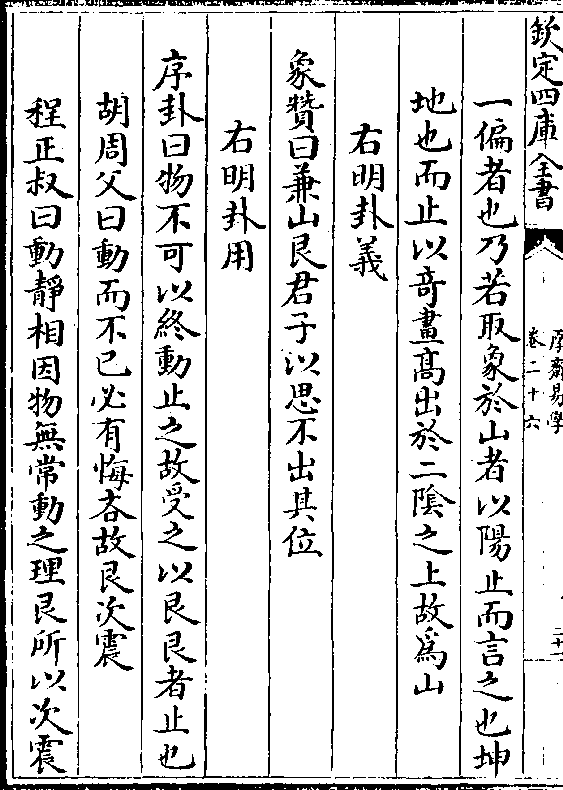 欽定四庫全書
厚齋易學
卷二十六
二十一
一偏者也乃若取象於山者以陽止而言之也坤
地也而止以奇畫高出於二陰之上故為山
右明卦義
象贊曰兼山艮君子以思不出其位
右明卦用
序卦曰物不可以終動止之故受之以艮艮者止也
胡周父曰動而不已必有悔吝故艮次震
程正叔曰動靜相因物無常動之理艮所以次震